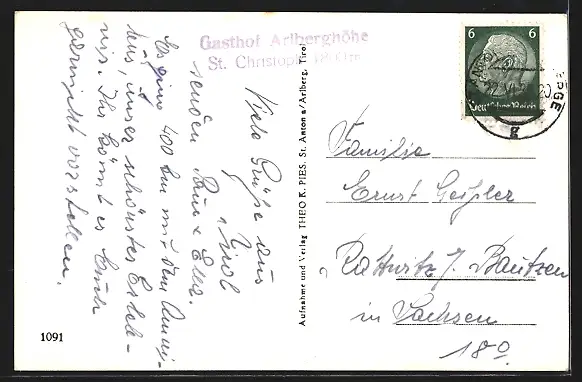 Gasthof Arlberghöhe
St. Christoph
6 6
Deutsches Reich
Viele Grüße aus
Tirol
senden
Es ging 400 km mit dem
bus, unser schönstes Erleb-
nis. Ihr könnt es Euch
garnicht vorstellen.
Aufnahme und Verlag THEO K. PIES, St. Anton a/Arlberg, Tirol
Familie
Ernst Geißler
Rattwitz / Bautzen
in Sachsen
180
1091